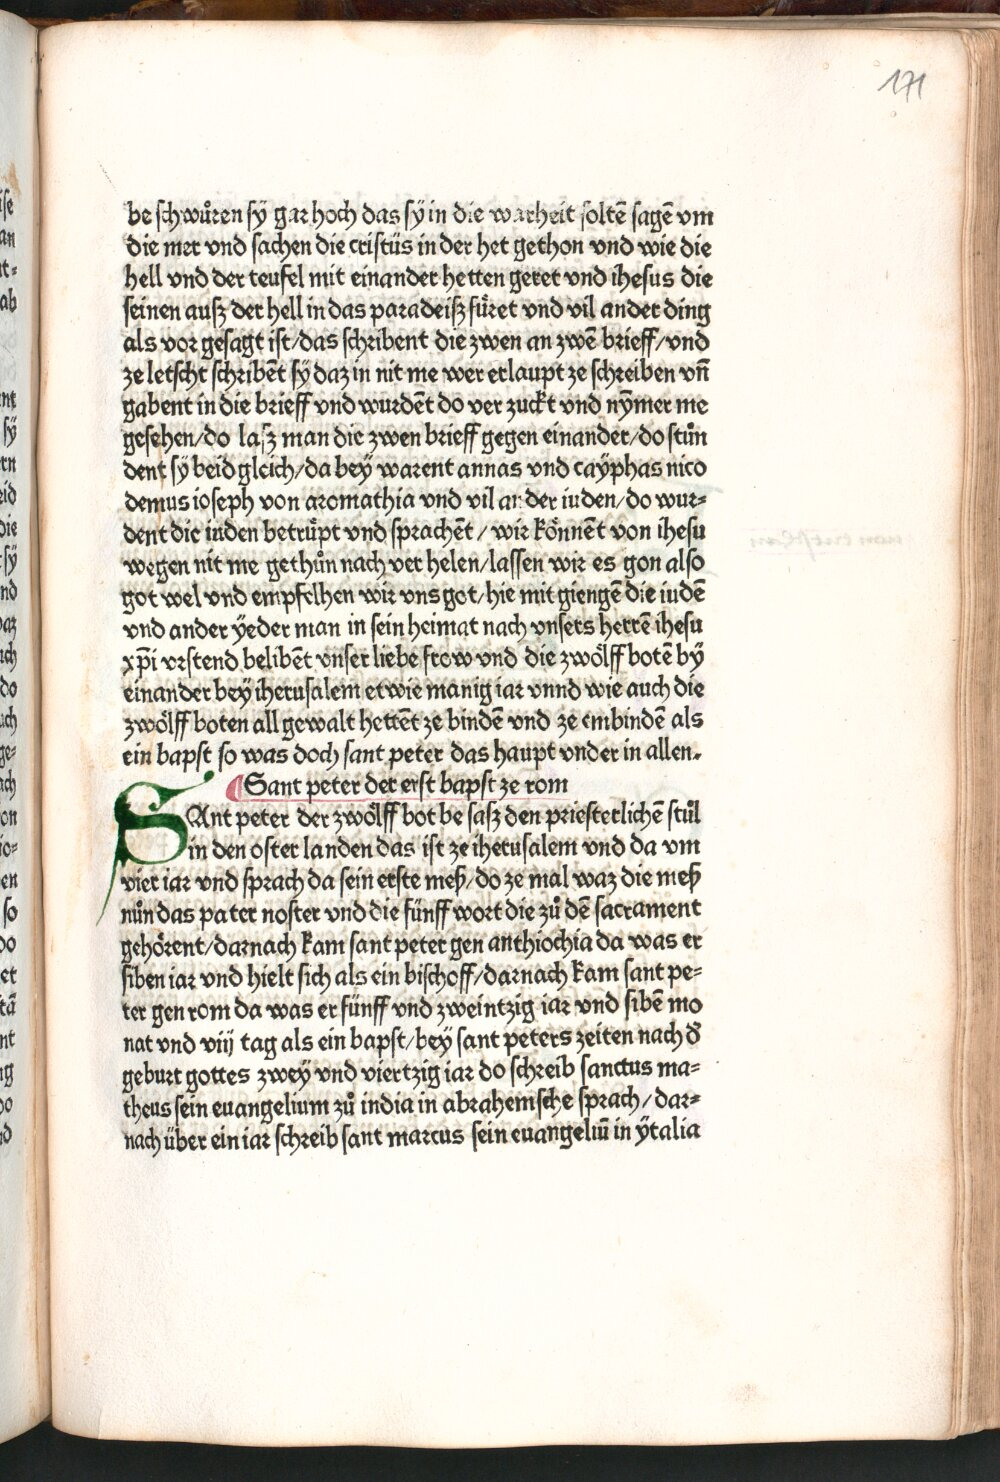 171
be schwůren sÿ gar hoch das sÿ in die warheit soltē sagē vm
die mer vnd sachen die cristüs in der het gethon vnd wie die
hell vnd der teufel mit einander hetten geret vnd ihesus die
seinen ausz der hell in das paradeisz fůret vnd vil ander ding
als vor gesagt ist/das schribent die zwen an zwē brieff/vnd
ze letscht schribēt sÿ daz in nit me wer erlaupt ze schreiben vn̄
gabent in die brieff vnd wurdēt do ver zuckt vnd nÿmer me
gesehen/do lasz man die zwen brieff gegen einander/do stůn
dent sÿ beid gleich/da beÿ warent annas vnd caÿphas nico
demus ioseph von aromathia vnd vil ander iuden/do wur⸗
dent die iuden betrůpt vnd sprachēt/wir koͤnnēt von ihesu
wegen nit me gethůn nach ver helen/lassen wir es gon also
got wel vnd empfelhen wir vns got/hie mit giengē die iudē
vnd ander ÿeder man in sein heimat nach vnsers herrē ihesu
xp̄i vrstend belibēt vnser liebe frow vnd die zwoͤlff botē bÿ
einander beÿ iherusalem etwie manig iar vnnd wie auch die
zwoͤlff boten all gewalt hettēt ze bindē vnd ze embindē als
ein bapst so was doch sant peter das haupt vnder in allen.
¶Sant peter der erst bapst ze rom
SAnt peter der zwoͤlff bot be sasz den priesterlichē stůl
in den oster landen das ist ze iherusalem vnd da vm
vier iar vnd sprach da sein erste mesz/do ze mal waz die mesz
nůn das pater noster vnd die fünff wort die zů dē sacrament
gehoͤrent/darnach kam sant peter gen anthiochia da was er
siben iar vnd hielt sich als ein bischoff/darnach kam sant pe⸗
ter gen rom da was er fünff vnd zweintzig iar vnd sibē mo
nat vnd viij tag als ein bapst/beÿ sant peters zeiten nach d̄
geburt gottes zweÿ vnd viertzig iar do schreib sanctus ma⸗
theus sein euangelium zů india in abrahemsche sprach/dar⸗
nach über ein iar schreib sant marcus sein euangeliū in ÿtalia